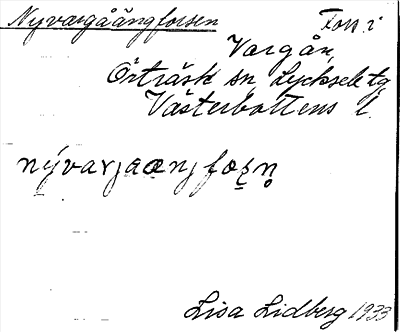 Nyvargåängforsen Fors i
Vargån,
Örträsk sn, Lycksele tg,
Västerbottens l.
Lisa Lidberg 1933